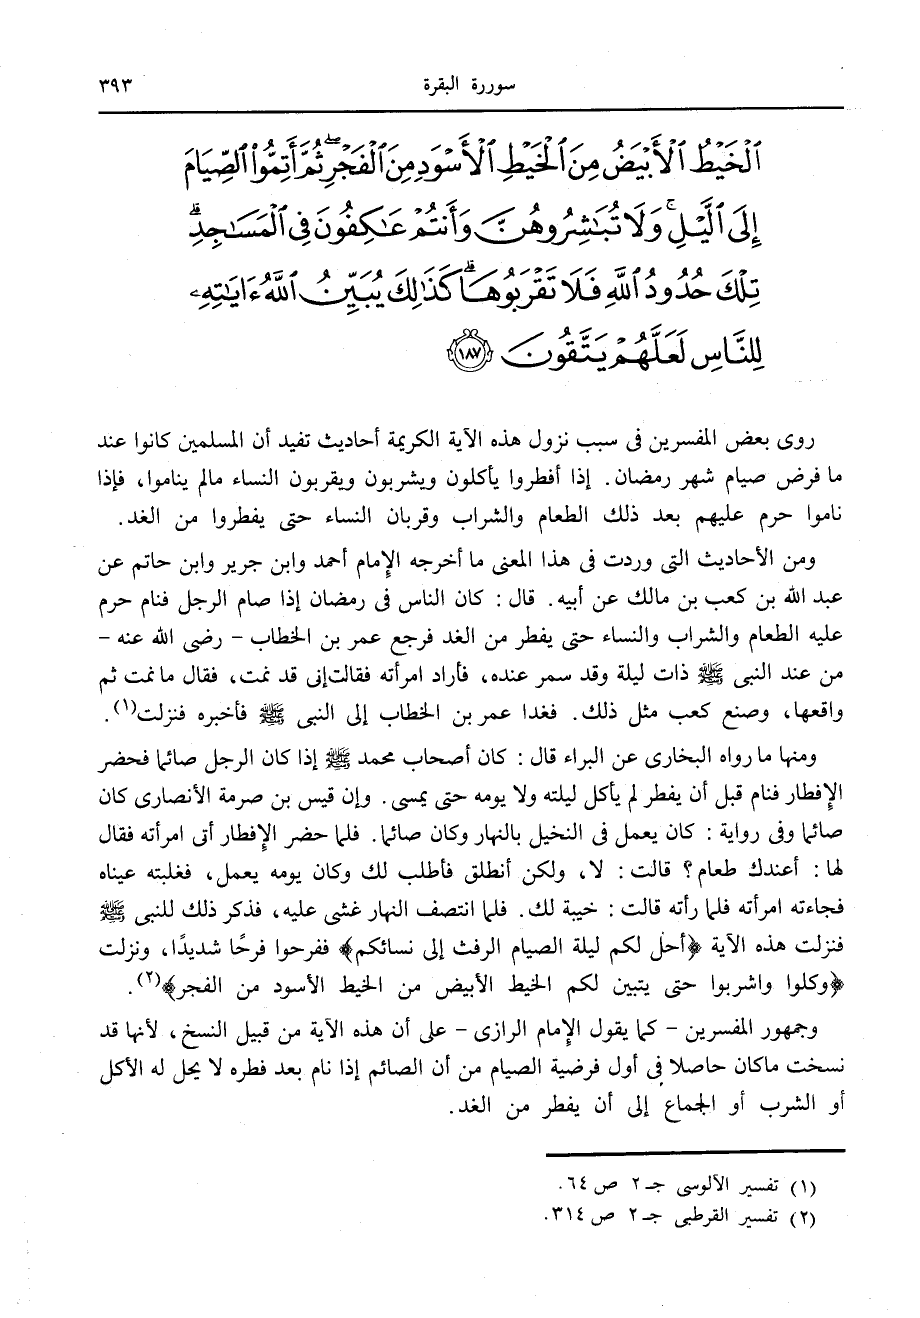 سوررة البقرة ٣٩٣
ٱلْخَيْطُ ٱلْأَبْيَضُ مِنَ ٱلْخَيْطِ ٱلْأَسْوَدِ مِنَ ٱلْفَجْرِ ۖ ثُمَّ أَتِمُّوا۟ ٱلصِّيَامَ
إِلَى ٱلَّيْلِ ۚ وَلَا تُبَـٰشِرُوهُنَّ وَأَنتُمْ عَـٰكِفُونَ فِى ٱلْمَسَـٰجِدِ ۗ
تِلْكَ حُدُودُ ٱللَّهِ فَلَا تَقْرَبُوهَا ۗ كَذَٰلِكَ يُبَيِّنُ ٱللَّهُ ءَايَـٰتِهِۦ
لِلنَّاسِ لَعَلَّهُمْ يَتَّقُونَ ١٨٧
روى بعض المفسرين فى سبب نزول هذه الآية الكريمة أحاديث تفيد أن المسلمين كانوا عند
ما فرض صيام شهر رمضان. إذا أفطروا يأكلون ويشربون ويقربون النساء مالم يناموا، فإذا
ناموا حرم عليهم بعد ذلك الطعام والشراب وقربان النساء حتى يفطروا من الغد.
ومن الأحاديث التى وردت فى هذا المعنى ما أخرجه الإمام أحمد وابن جرير وابن حاتم عن
عبد الله بن كعب بن مالك عن أبيه. قال : كان الناس فى رمضان إذا صام الرجل فنام حرم
عليه الطعام والشراب والنساء حتى يفطر من الغد فرجع عمر بن الخطاب - رضى الله عنه -
من عند النبى ﷺ ذات ليلة وقد سمر عنده، فأراد امرأته فقالت إنى قد نمت، فقال ما نمت ثم
واقعها، وصنع كعب مثل ذلك. فغدا عمر بن الخطاب إلى النبى ﷺ فأخبره فنزلت(١).
ومنها ما رواه البخارى عن البراء قال : كان أصحاب محمد ﷺ إذا كان الرجل صائما فحضر
الإفطار فنام قبل أن يفطر لم يأكل ليلته ولا يومه حتى يمسى. وإن قيس بن صرمة الأنصارى كان
صائما وفى رواية : كان يعمل فى النخيل بالنهار وكان صائما. فلما حضر الإفطار أتى امرأته فقال
لها : أعندك طعام؟ قالت : لا، ولكن أنطلق فأطلب لك وكان يومه يعمل، فغلبته عيناه
فجاءته امرأته فلما رأته قالت : خيبة لك. فلما انتصف النهار غشى عليه، فذكر ذلك للنبى ﷺ
فنزلت هذه الآية ﴿أحل لكم ليلة الصيام الرفث إلى نسائكم﴾ ففرحوا فرحًا شديدًا، ونزلت
﴿وكلوا واشربوا حتى يتبين لكم الخيط الأبيض من الخيط الأسود من الفجر﴾(٢).
وجمهور المفسرين - كما يقول الإمام الرازى - على أن هذه الآية من قبيل النسخ، لأنها قد
نسخت ماكان حاصلا فى أول فرضية الصيام من أن الصائم إذا نام بعد فطره لا يحل له الأكل
أو الشرب أو الجماع إلى أن يفطر من الغد.
(١) تفسير الآلوسى جـ ٢ ص ٦٤.
(٢) تفسير القرطبى جـ ٢ ص ٣١٤.